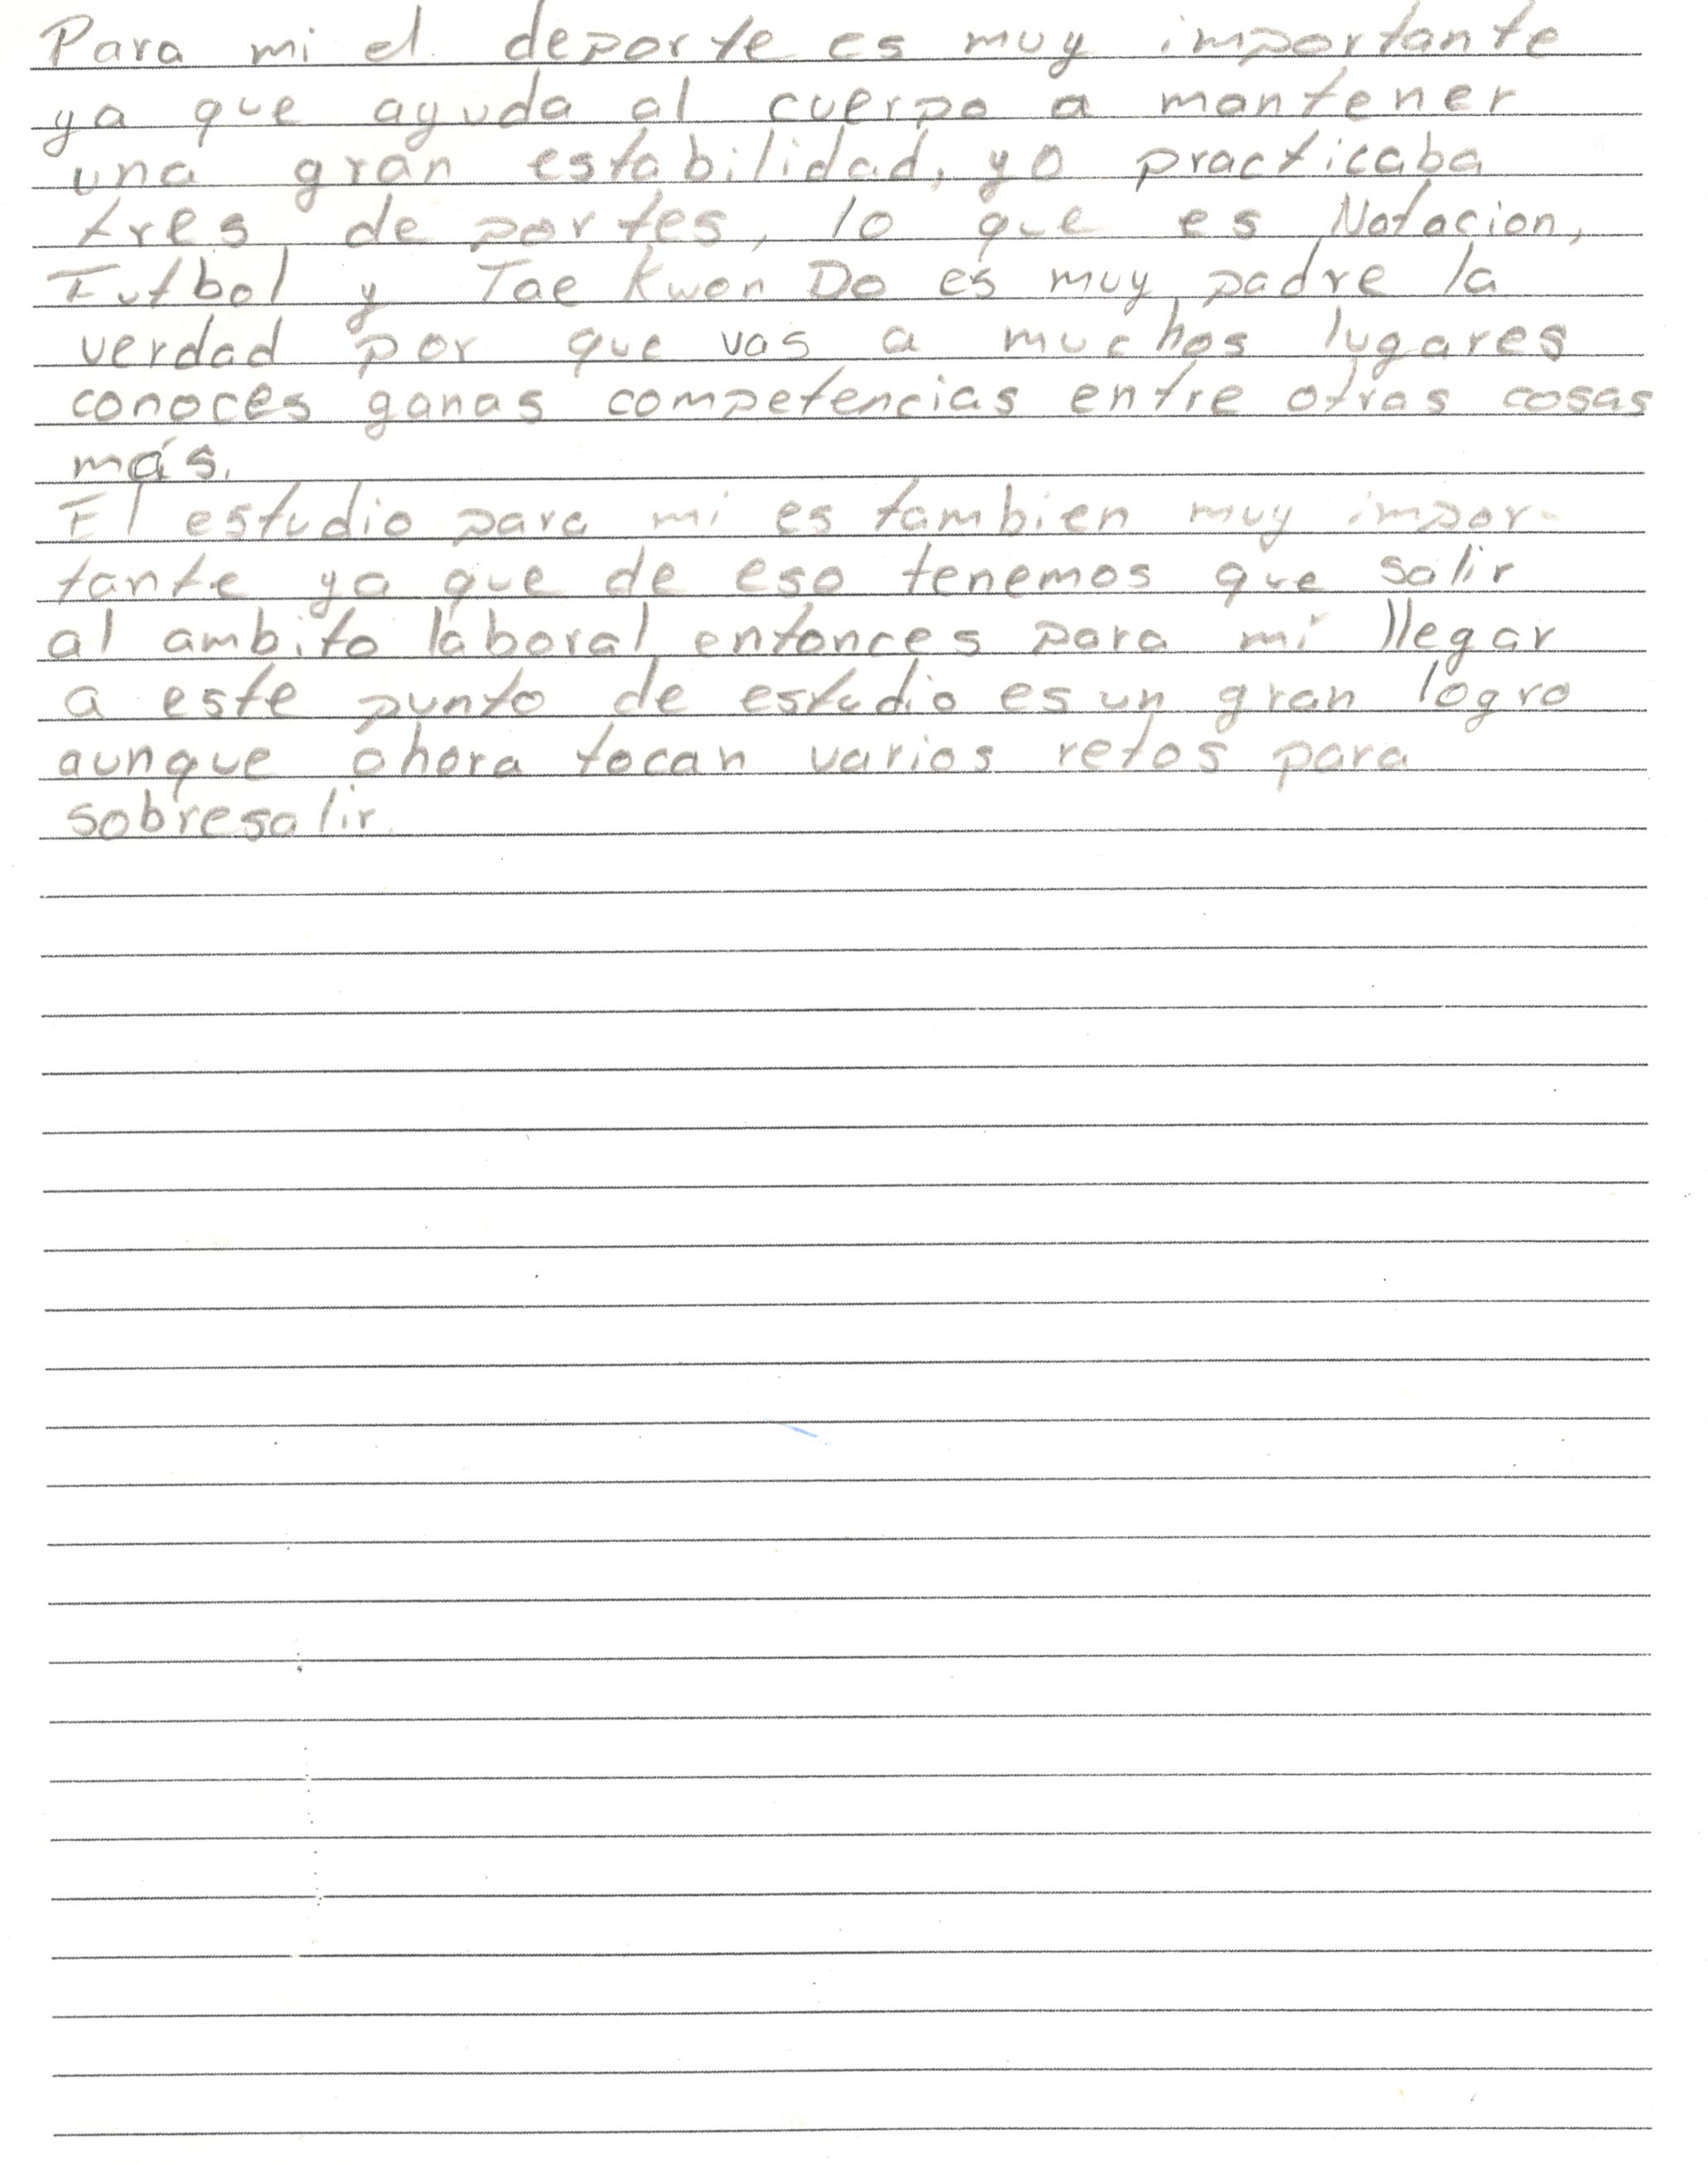 Para mi el deporte es muy importante
ya que ayuda al cuerpo a mantener
una gran estabilidad, yo practicaba
tres de portes, lo que es Natacion,
Futbol y Tae Kwon Do es muy padre la
verdad por que vas a muchos lugares
conoces ganas competencias entre otras cosas
más.
El estudio para mi es tambien muy impor-
tante ya que de eso tenemos que salir
al ambito laboral entonces para mi llegar
a este punto de estudio es un gran logro
aunque ahora tocan varios retos para
sobresalir.